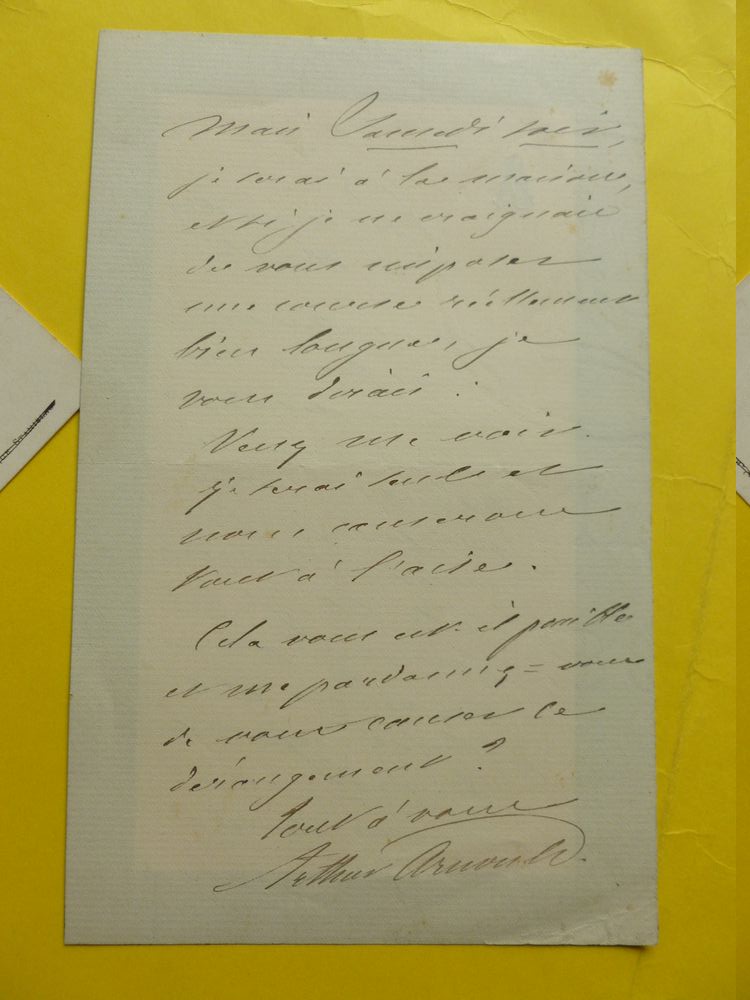 Mais Samedi soir,
je serai à la maison,
et si je ne craignais
de vous imposer
une course réellement
bien longue, je
vous dirais :
Venez me voir.
je serai seule et
nous causerons
tout à l'aise.
Cela vous est-il possible
et me pardonnez=vous
de vous causer ce
dérangement ?
Tout à vous
Arthur Arnould.